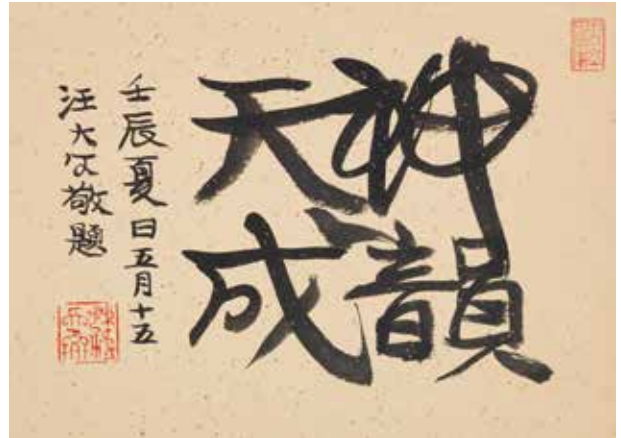 神韻
天成
壬辰夏日五月十五
汪大文敬題